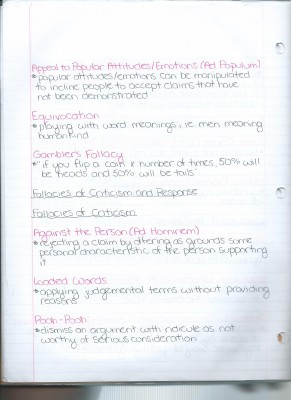 Appeal to Popular Attitudes/Emotions (Ad Populum)
* popular attitudes/emotions can be manipulated
to incline people to accept claims that have
not been demonstrated
Equivocation
* playing with word meanings, i.e. men meaning
humankind
Gambler's Fallacy
* "if you flip a coin x number of times, 50% will
be heads and 50% will be tails"
Fallacies of Criticism and Response
Fallacies of Criticism
Against the Person (Ad Hominem)
* rejecting a claim by offering as grounds some
personal characteristic of the person supporting
it
Loaded Words
* applying judgemental terms without providing
reasons
Pooh-Pooh
* dismiss an argument with ridicule as not
worthy of serious consideration